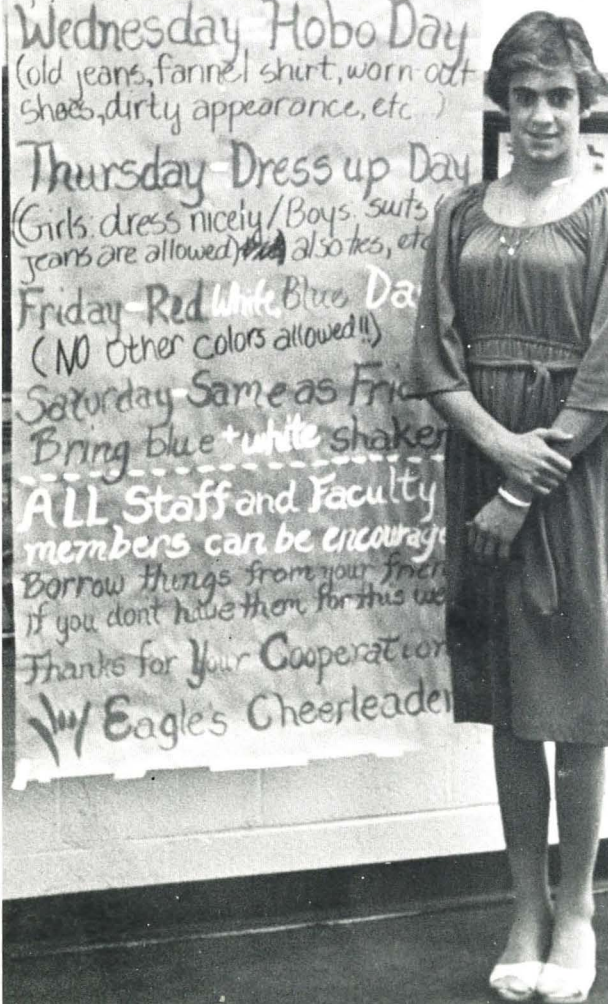 Wednesday Hobo Day
(old jeans, fannel shirt, worn-out
shoes, dirty appearance, etc.)
Thursday-Dress up Day
(Girls: dress nicely/Boys: suits
jeans are allowed) also ties, etc
Friday-Red White Blue Da
(NO other colors allowed!!)
Saturday-Same as Frid
Bring blue + white shaker
ALL Staff and Faculty
members can be encourage
Borrow things from your frien
if you dont have them for this we
Thanks for Your Cooperation
Eagle's Cheerleader